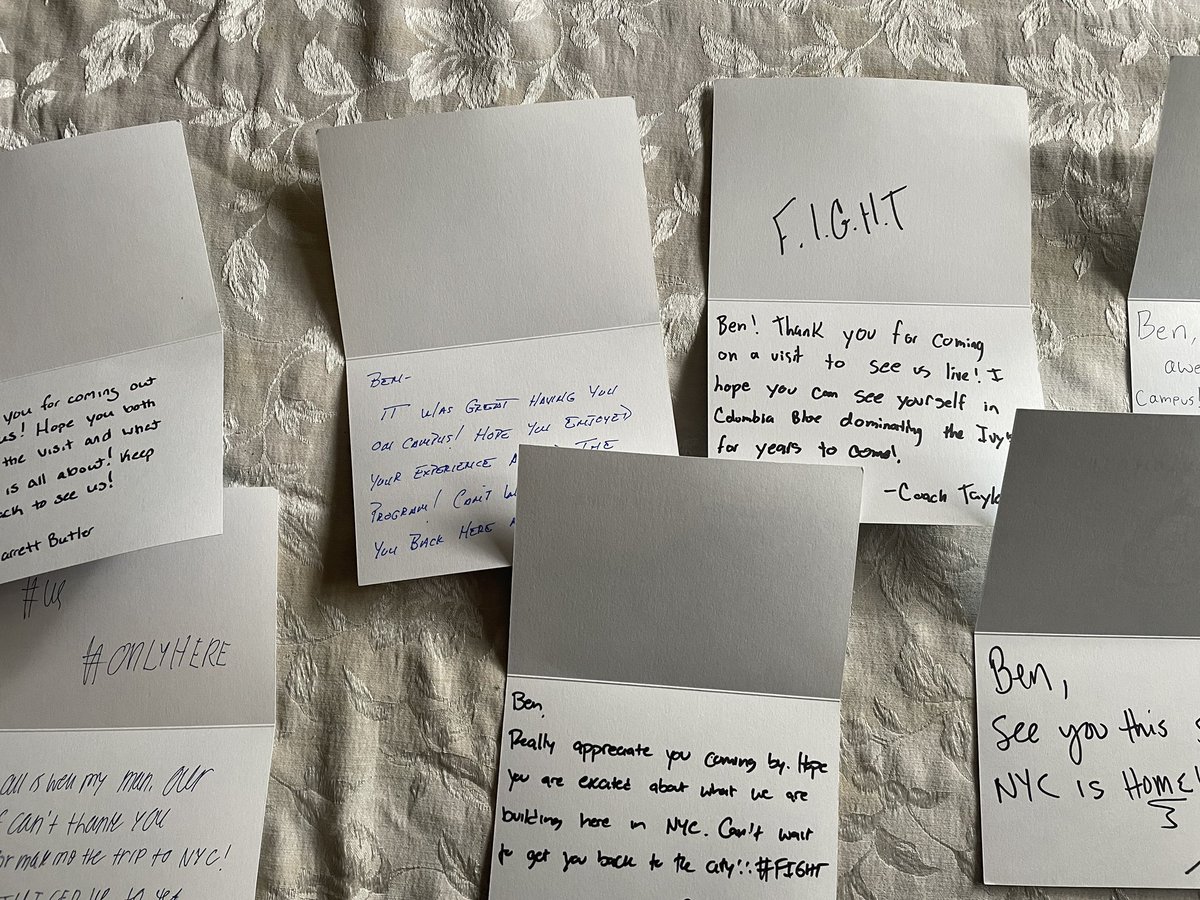 you for coming out
us! Hope you both
the visit and what
is all about! Keep
back to see us!
Garrett Butler
BEN-
IT WAS GREAT HAVING YOU
ON CAMPUS! HOPE YOU ENJOYED
YOUR EXPERIENCE THE
PROGRAM! CAN'T
YOU BACK HERE
F.I.G.H.T
Ben! Thank you for coming
on a visit to see us live! I
hope you can see yourself in
Columbia Blue dominating the Ivy
for years to come!
-Coach
Ben,
Campus!
#ONLYHERE
all is well my man. OUR
can't thank YOU
for making the trip to NYC!
Ben,
Really appreciate you coming by. Hope
you are excited about what we are
building here in NYC. Can't wait
to get you back to the city!! #FIGHT
Ben,
See you this
NYC is HOME!